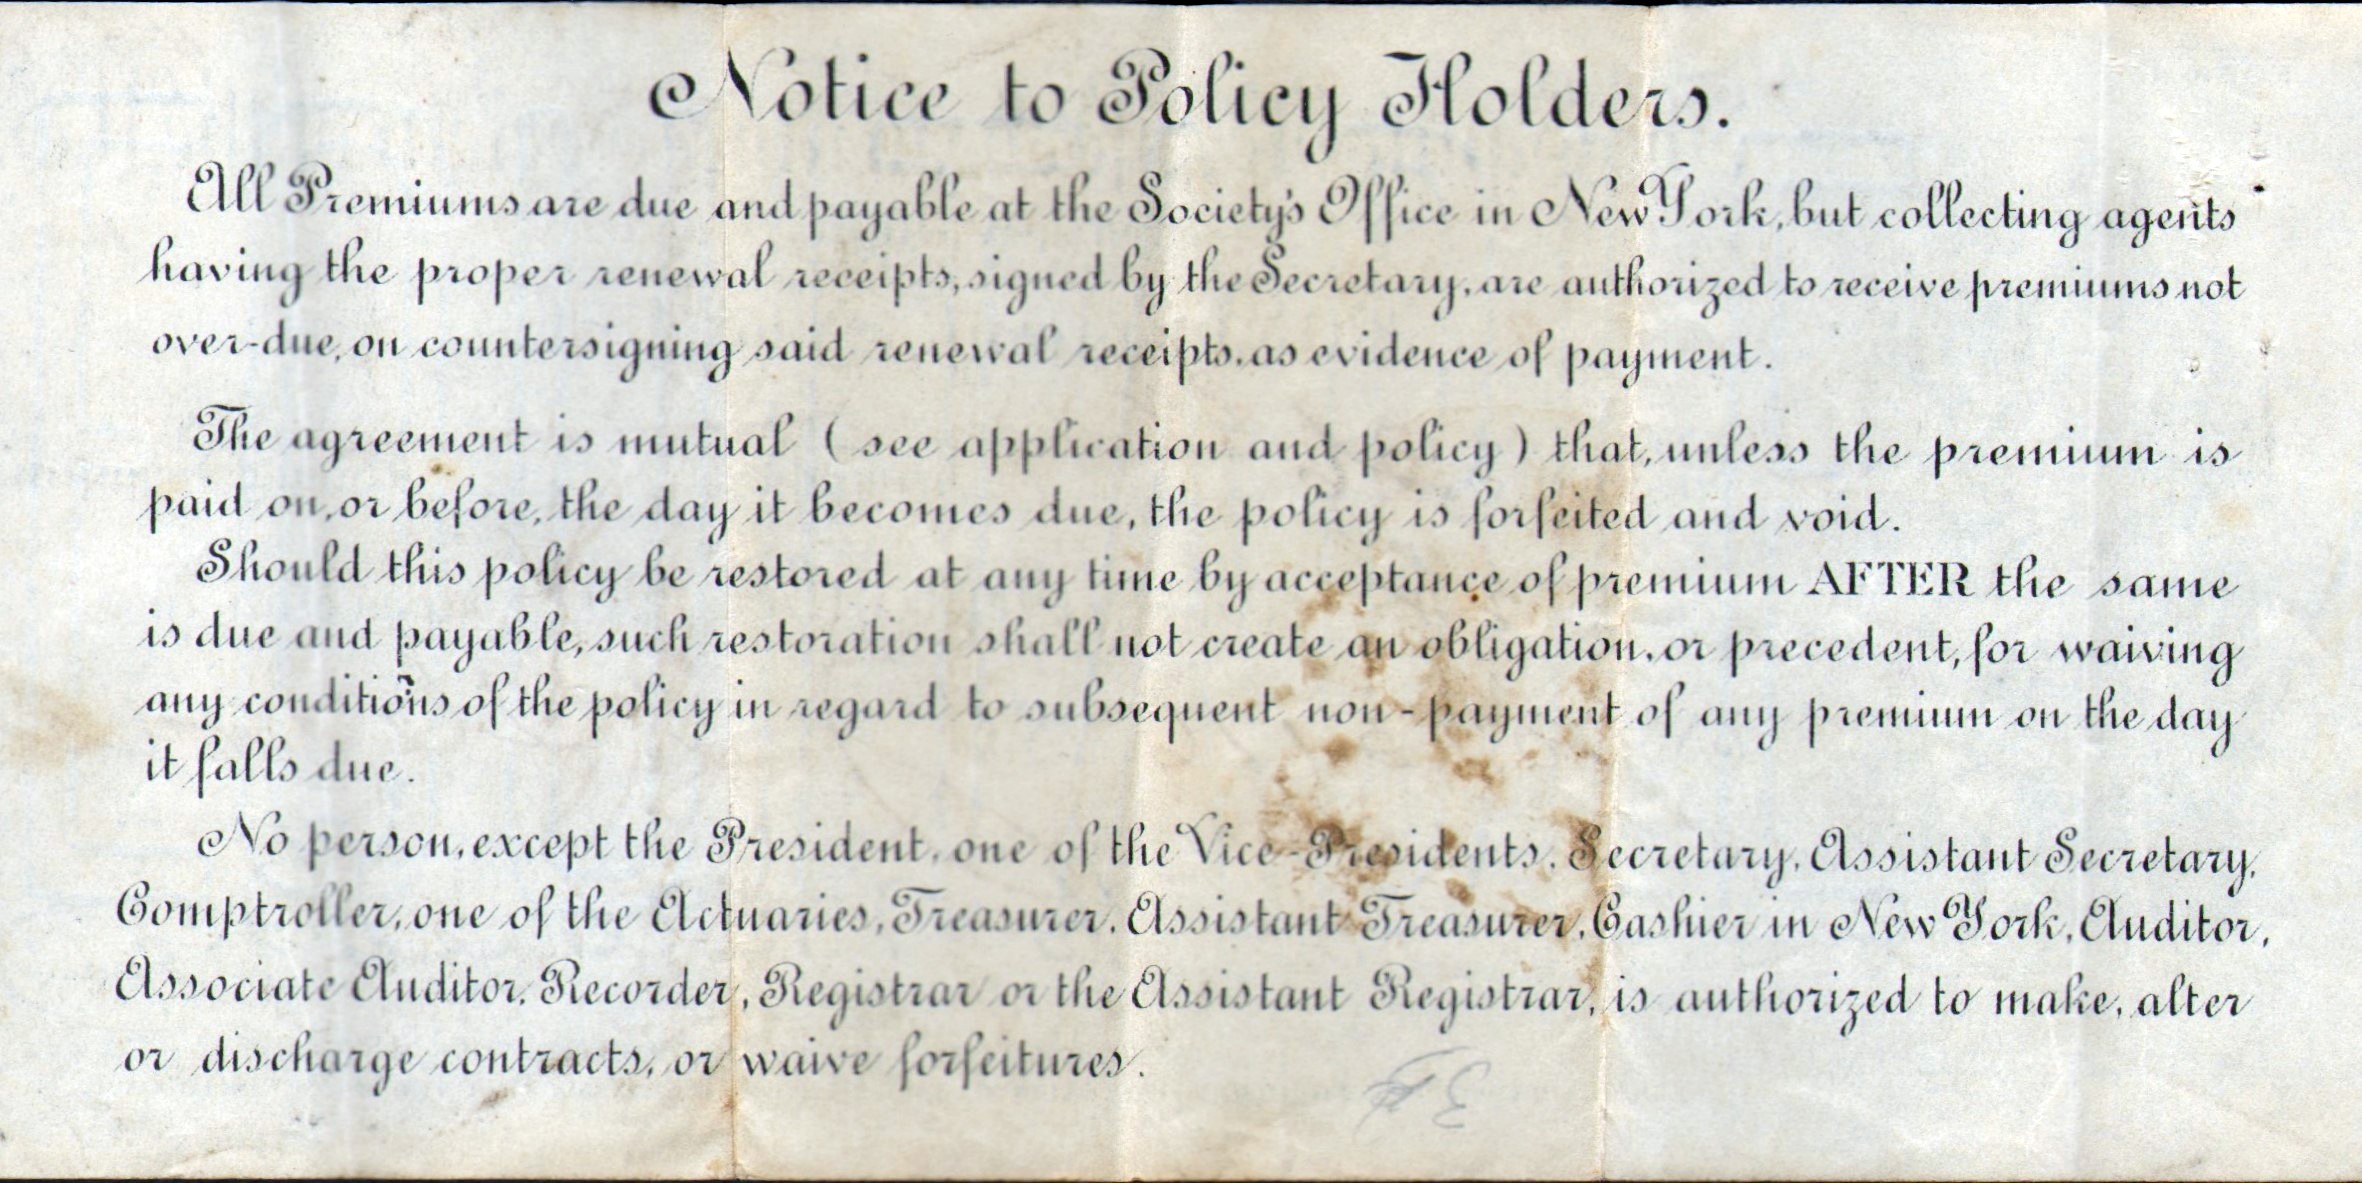 Notice to Policy Holders.
All Premiums are due and payable at the Society's Office in New York, but collecting agents
having the proper renewal receipts, signed by the Secretary, are authorized to receive premiums not
over-due, on countersigning said renewal receipts, as evidence of payment.
The agreement is mutual (see application and policy) that, unless the premium is
paid on, or before, the day it becomes due, the policy is forfeited and void.
Should this policy be restored at any time by acceptance of premium AFTER the same
is due and payable, such restoration shall not create an obligation, or precedent, for waiving
any conditions of the policy in regard to subsequent non-payment of any premium on the day
it falls due.
No person, except the President, one of the Vice-Presidents, Secretary, Assistant Secretary,
Comptroller, one of the Actuaries, Treasurer, Assistant Treasurer, Cashier in New York, Auditor,
Associate Auditor, Recorder, Registrar or the Assistant Registrar, is authorized to make, alter
or discharge contracts, or waive forfeitures.